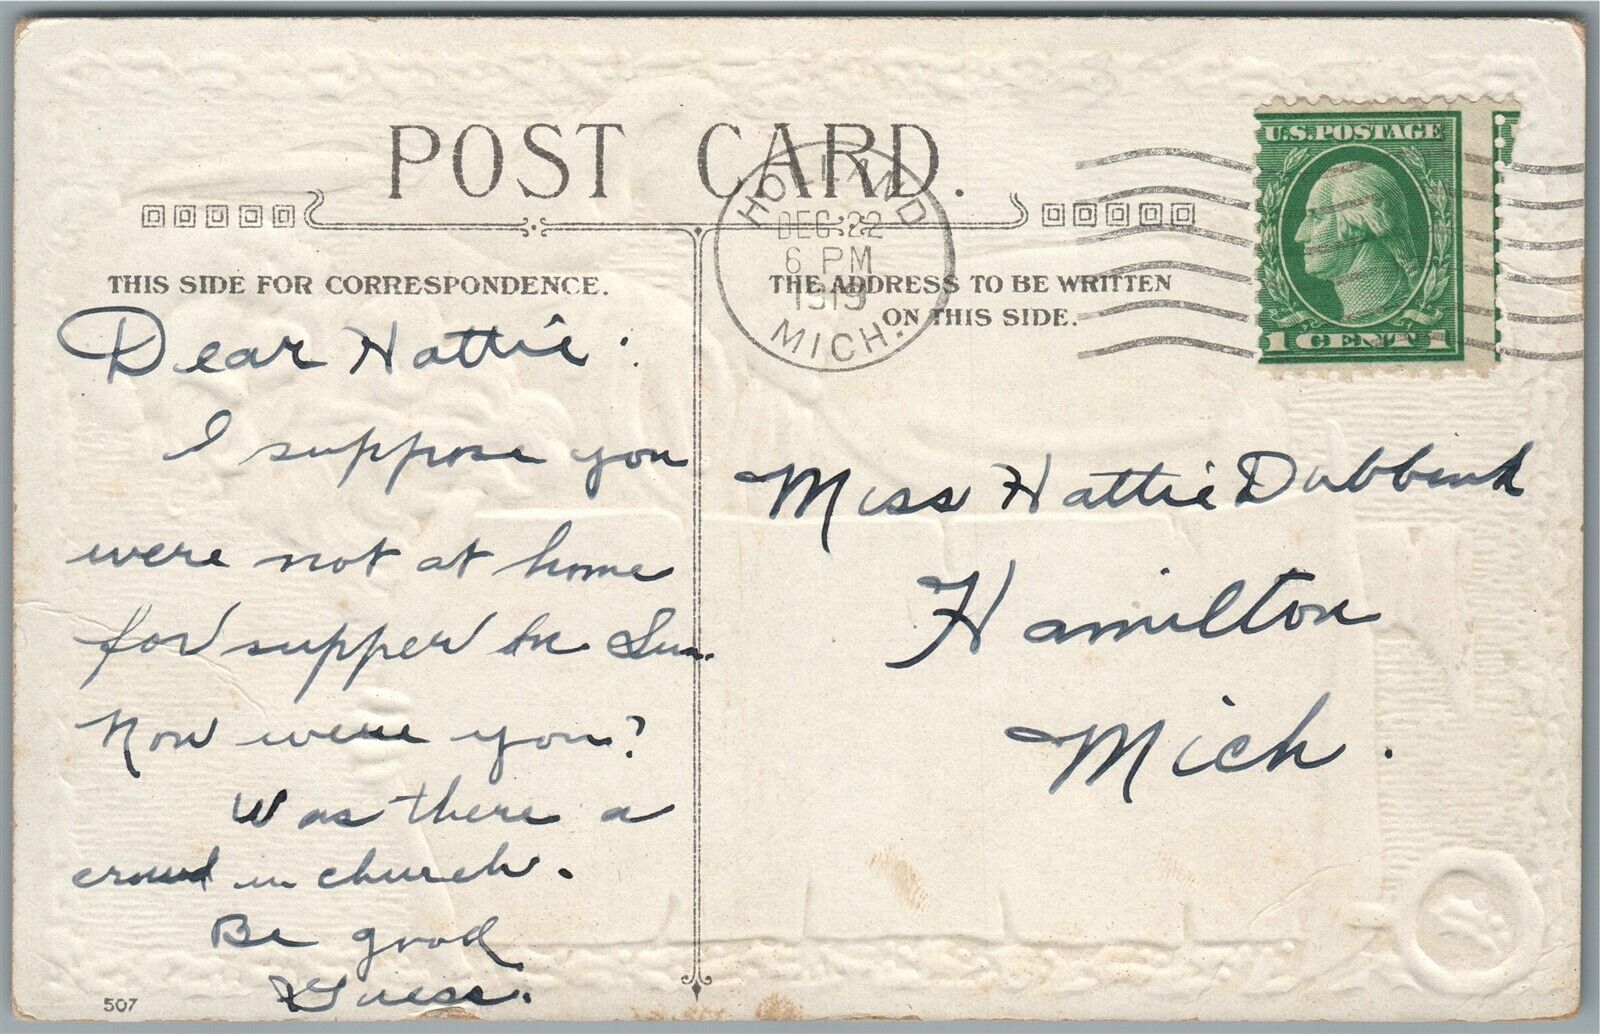 POST CARD.
THIS SIDE FOR CORRESPONDENCE.
Dear Hattie:
I suppose you
were not at home
for supper on Sun.
Now were you?
Was there a
crowd in church.
Be good
Guess.
507
HOLLAND
DEC 22
6 PM
1919
MICH.
THE ADDRESS TO BE WRITTEN
ON THIS SIDE.
U.S. POSTAGE
1 CENT 1
Miss Hattie Dubbink
Hamilton
Mich.